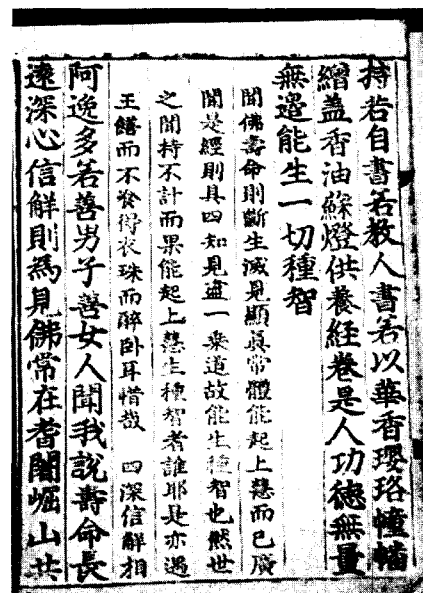 持若自書若教人書若以華香瓔珞幢幡
繒盖香油穌燈供養經卷是人功德無量
無邉能生一切種智
聞佛壽命則斷生滅見顯眞常體能起上慧而已廣
聞是經則具四知見盡一乗道故能生種智也然世
之聞持不計而果能起上慧生種智者誰耶是亦遇
王饍而不飡得衣珠而醉卧耳惜哉　四深信解相
阿逸多若善男子善女人聞我說壽命長
遠深心信解則爲見佛常在耆闍崛山共